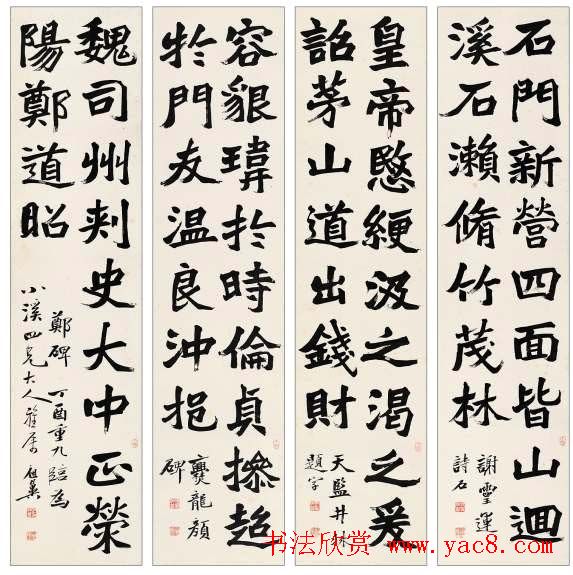 石門新營四面皆山迴
溪石瀨脩竹茂林
謝靈運
詩石
皇帝愍綆汲之渴之爰
詔茅山道出錢財
天監井牀
題字
容貇瑋扵時倫貞摻超
扵門友温良沖挹
爨龍顔
碑
魏司州刾史大中正滎
陽鄭道昭
鄭碑 丁酉重九臨為
小溪四兄大人雅屬 祖翼
书法欣赏 www.yac8.com